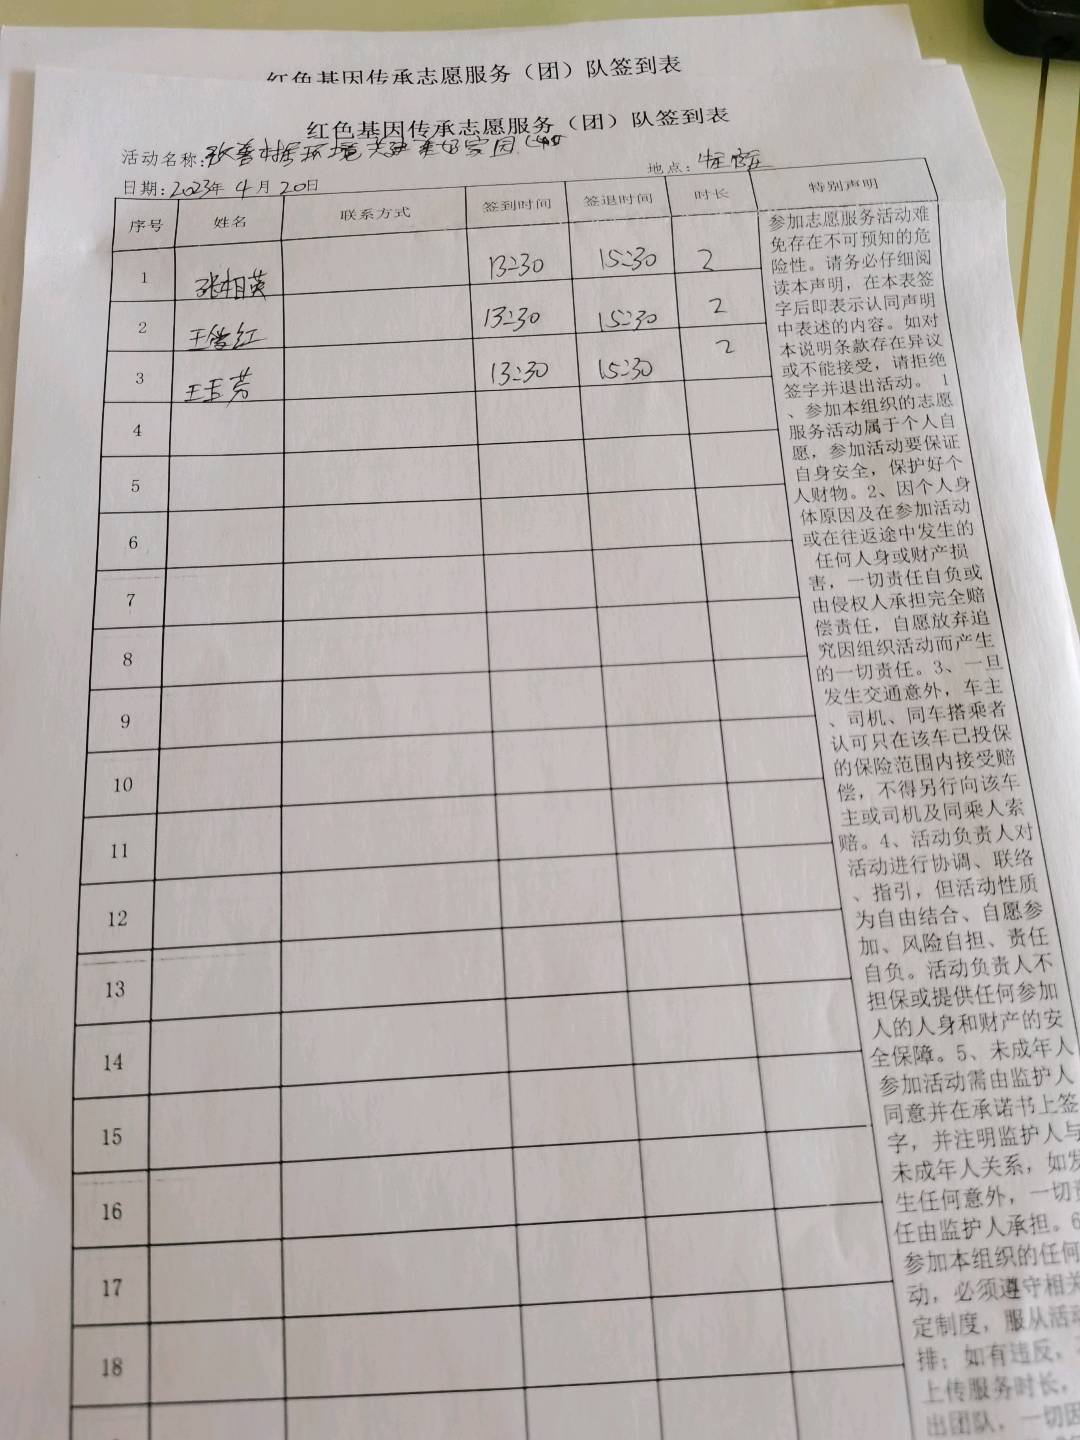 红色基因传承志愿服务（团）队签到表
红色基因传承志愿服务（团）队签到表
活动名称: 改善村居环境 共建美好家园
地点:
日期: 2023年 4月 20日
序号 姓名 联系方式 签到时间 签退时间 时长 特别声明
1 张相英 13:30 15:30 2
2 王 红 13:30 15:30 2
3 王玉芳 13:30 15:30 2
4
5
6
7
8
9
10
11
12
13
14
15
16
17
18
参加志愿服务活动难
免存在不可预知的危
险性。请务必仔细阅
读本声明，在本表签
字后即表示认同声明
中表述的内容。如对
本说明条款存在异议
或不能接受，请拒绝
签字并退出活动。 1
、参加本组织的志愿
服务活动属于个人自
愿，参加活动要保证
自身安全，保护好个
人财物。2、因个人身
体原因及在参加活动
或在往返途中发生的
任何人身或财产损
害，一切责任自负或
由侵权人承担完全赔
偿责任，自愿放弃追
究因组织活动而产生
的一切责任。3、一旦
发生交通意外，车主
、司机、同车搭乘者
认可只在该车已投保
的保险范围内接受赔
偿，不得另行向该车
主或司机及同乘人索
赔。4、活动负责人对
活动进行协调、联络
、指引，但活动性质
为自由结合、自愿参
加、风险自担、责任
自负。活动负责人不
担保或提供任何参加
人的人身和财产的安
全保障。5、未成年人
参加活动需由监护人
同意并在承诺书上签
字，并注明监护人与
未成年人关系，如发
生任何意外，一切责
任由监护人承担。6
参加本组织的任何
动，必须遵守相关
定制度，服从活动
排；如有违反，
上传服务时长，
出团队，一切因